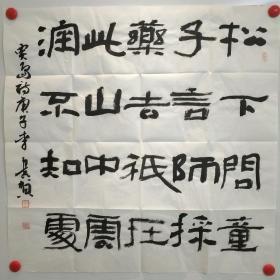 松下問童
子言師採
藥去祇在
此山中雲
深不知處
賈島詩庚子